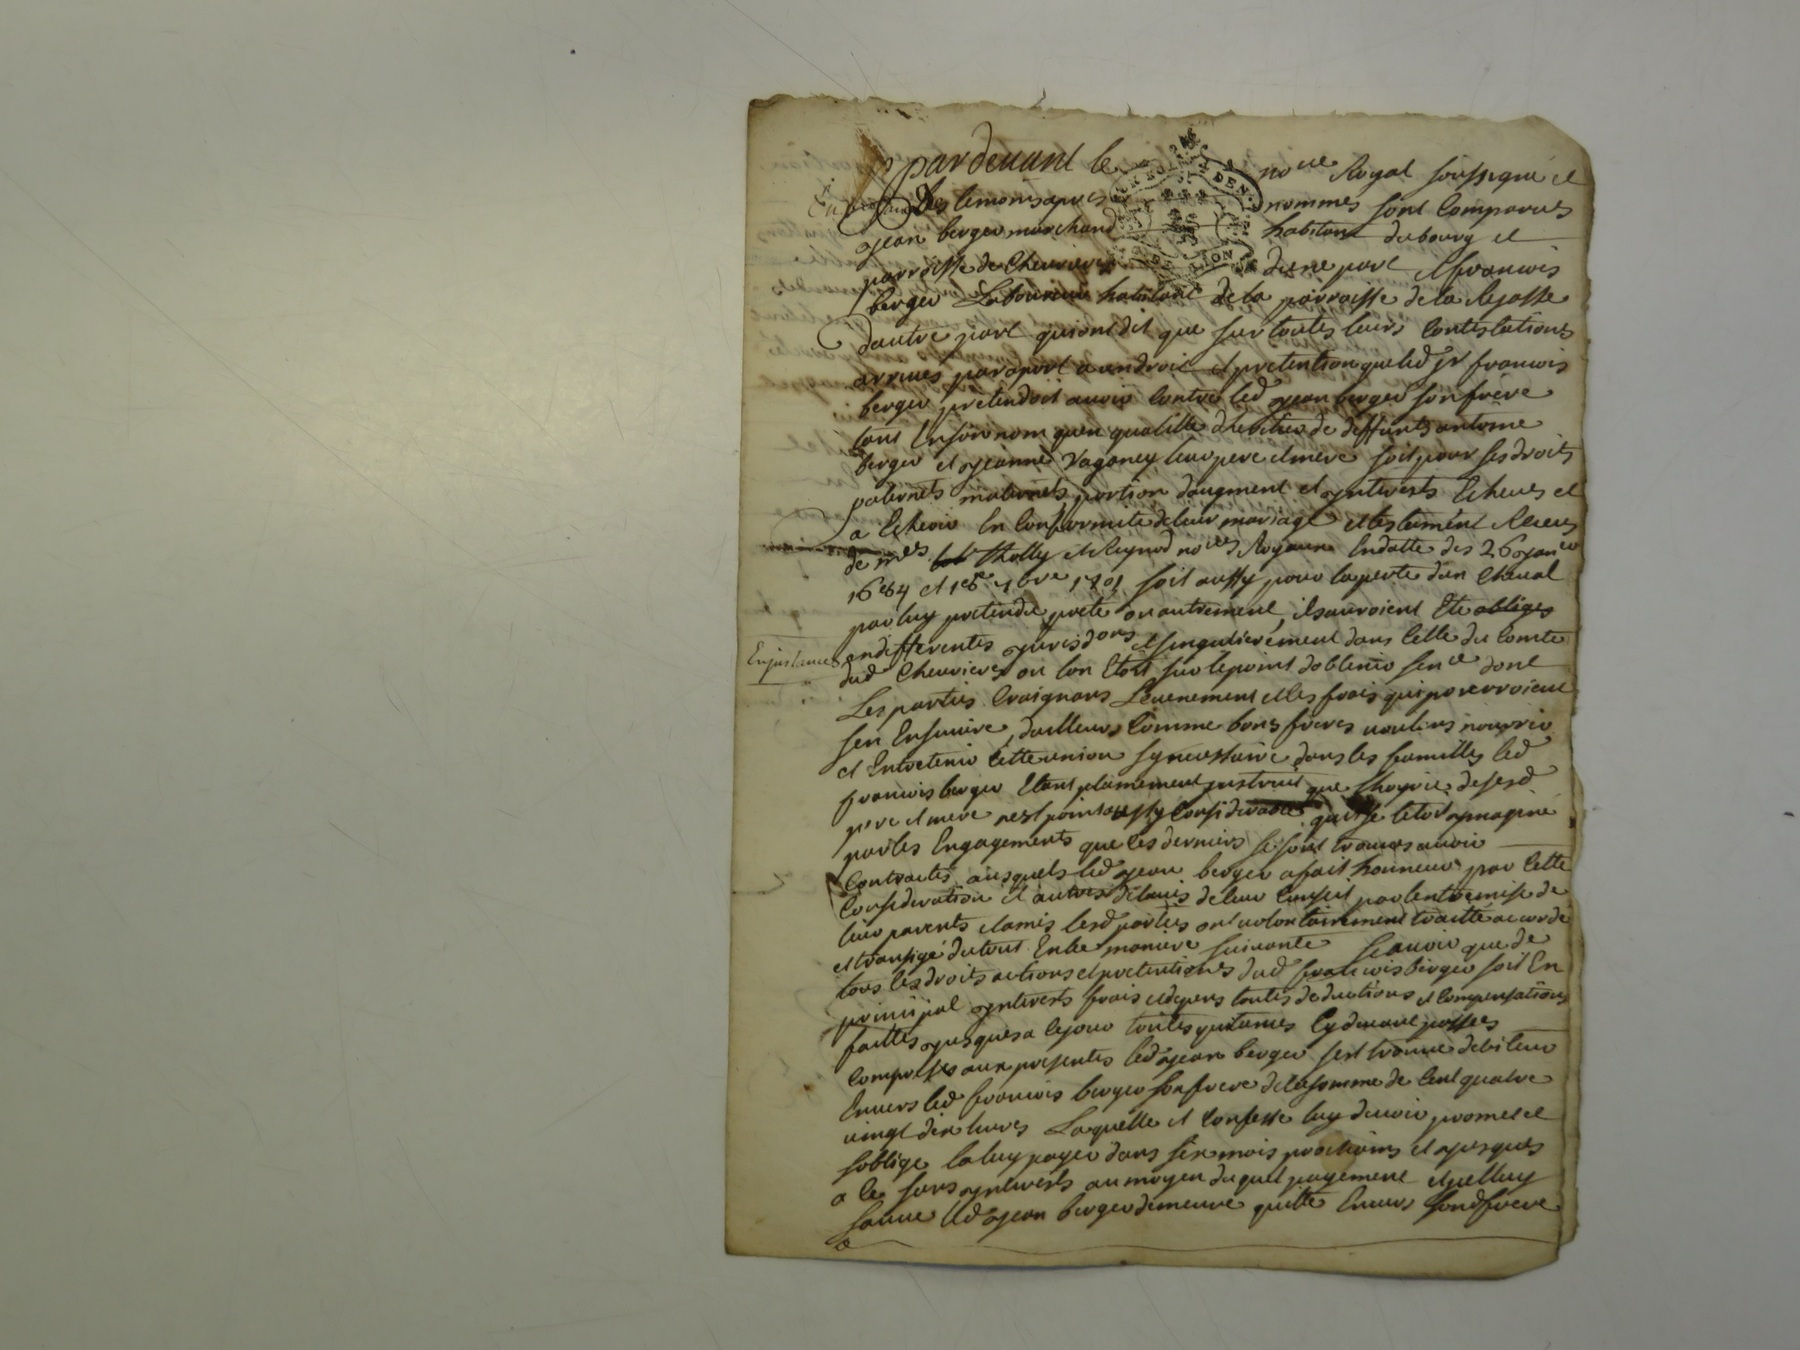 pardevant le no.re Royal soussigné et
Les temoins apres nommes sont Comparus
Jean berger marchand habitant du bourg et
parroisse de Chevrieres d'une part et francois
berger Laboureur habitant de la parroisse de la
dautre part qui ont dit que sur toutes leurs Contestations
arrivés par aport aux droit et pretention que led. Sr francois
berger pretendoit avoir Contre led Jean berger son frere
tant En son nom quen quallitté dheritier de deffunts antoine
berger et Jeanne Vaganey leur pere et mere soit pour ses droits
paternels maternels portion daugment et ynterests Echeus et
a Echeoir En Conformité de leur mariage et testament Receus
de mes Tholly et Reynod no.res Royaux En datte des 26 Janer
1684 et 1er 7bre 1701 soit aussy pour la perte dun Cheval
par luy pretendu preté ou autrement, ils auroient Eté obligés
En instances
en differentes jurisdons et singulierement dans Celle du Comté
dud Chevrieres ou lon Etoit sur le point dobtenir sence dont
Les parties Craignans Levenement et les frais qui pourroient
sen Ensuivre, dailleurs Comme bons freres voulans nourrir
et Entretenir Cette union sy necessaire dans les familles led
francois berger Etant plainement instruit que lhoyrie de sesd
pere et mere nest point aussy Considerable quil se letoit ymaginé
par les Engagements que les derniers se sont trouvés avoir
Contractés ausquels led Jean berger a fait honneur par Cette
Consideration et autres de lavis de leur Conseil par lentremise de
leur parents et amis lesd parties ont volontairement traitté acordé
et transigé du tout En la maniere suivante Scavoir que de
tous les droits actions et pretentions dud francois berger soit En
principal ynterests frais et depens toutes deductions et Compensations
faittes jusques a Ce jour toutes quitances Cy devant passées
Comprises aux presentes led Jean berger sest trouvé debiteur
Envers led francois berger son frere de la somme de Cent quatre
vingt dix livres Laquelle il Confesse luy devoir promet et
soblige la luy payer dans six mois prochains et jusques
a Ce sans ynterests au moyen duquel payement et Celluy
sauve led Jean berger demeure quitte Envers sond frere